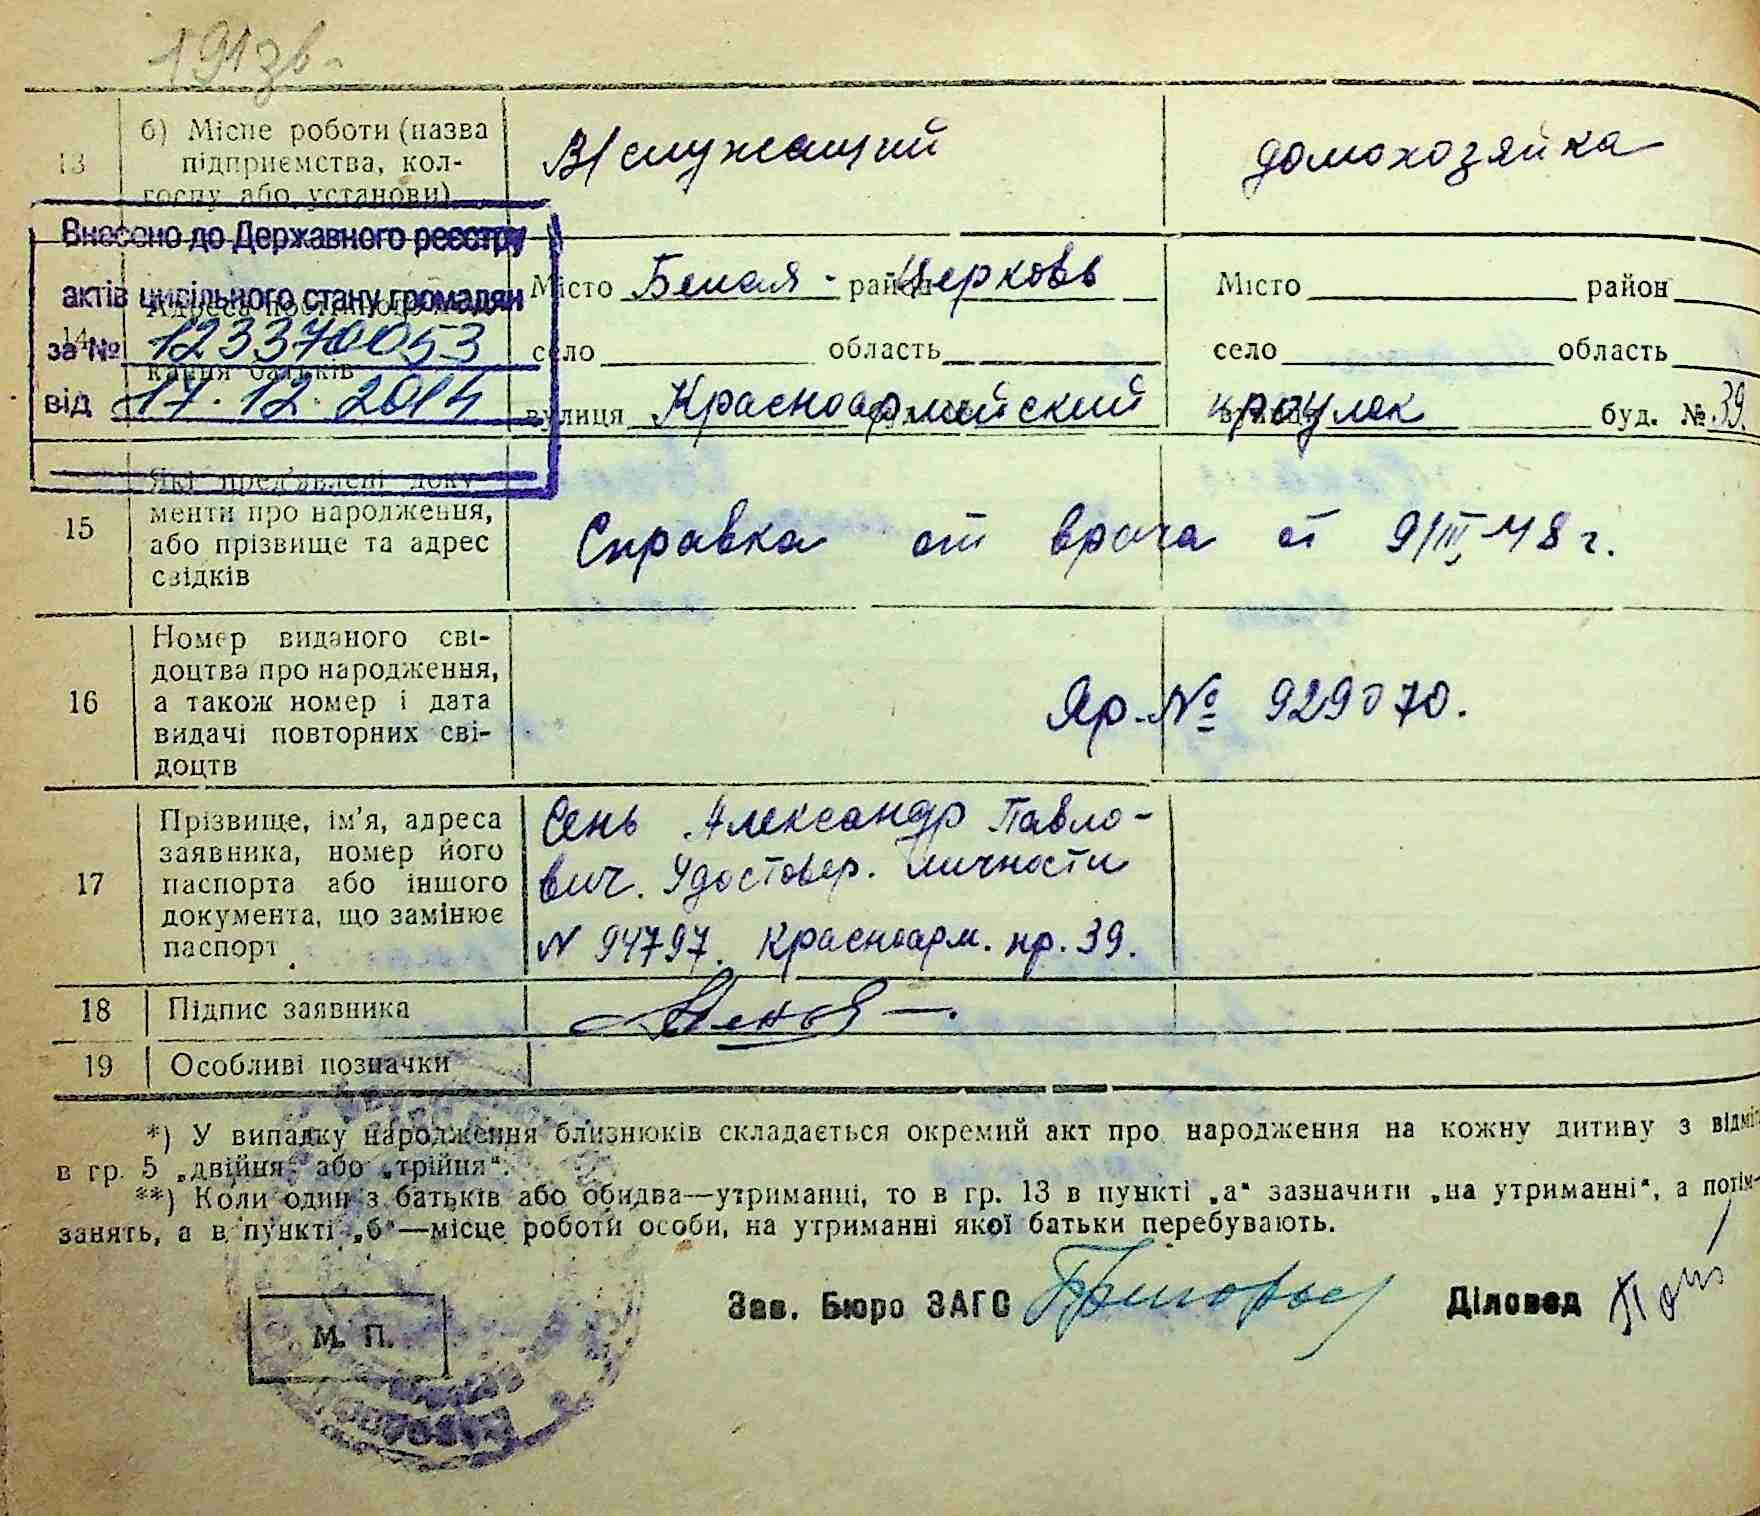 191зв.
13 б) Місце роботи (назва підприємства, колгоспу або установи) В/служащий домохозяйка
Внесено до Державного реєстру
актів цивільного стану громадян
за № 123370053
від 17.12.2014
14
Місто Белая - район Церковь Місто район
село область село область
вулиця Красноармейский буд. № 39.
15 Які пред'явлені документи про народження, або прізвище та адрес свідків Справка от врача от 9/III 48 г.
16 Номер виданого свідоцтва про народження, а також номер і дата видачі повторних свідоцтв Яр. № 929070.
17 Прізвище, ім'я, адреса заявника, номер його паспорта або іншого документа, що замінює паспорт
Сень Александр Павло-
вич. Удостовер. личности
N 94797. Красноарм. пр. 39.
18 Підпис заявника
19 Особливі позначки
*) У випадку народження близнюків складається окремий акт про народження на кожну дитину з
в гр. 5 „двійня" або „трійня".
**) Коли один з батьків або обидва—утриманці, то в гр. 13 в пункті „а" зазначити „на утриманні", а потім—
занять, а в пункті „б"—місце роботи особи, на утриманні якої батьки перебувають.
М. П.
Зав. Бюро ЗАГС Діловод